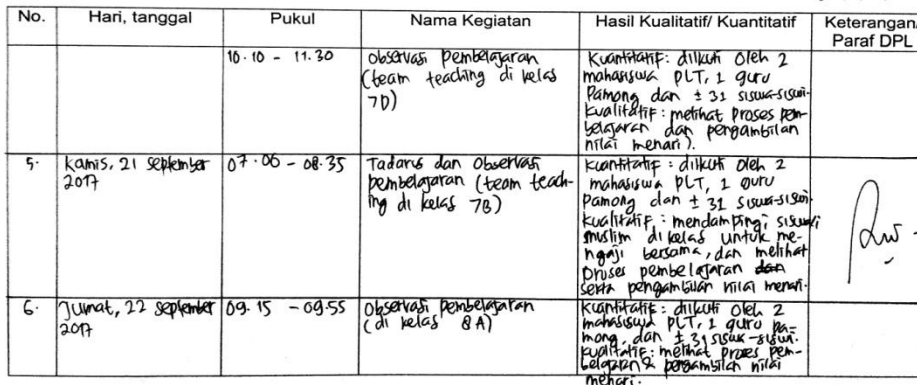 No. Hari, tanggal Pukul Nama Kegiatan Hasil Kualitatif/ Kuantitatif Keterangan/
Paraf DPL
10.10 - 11.30
Observasi Pembelajaran
(team teaching di kelas
7D)
Kuantitatif: diikuti oleh 2
mahasiswa PLT, 1 guru
Pamong dan ± 31 siswa-siswi.
Kualitatif: melihat proses pem-
belajaran dan pengambilan
nilai menari).
5. Kamis, 21 September
2017
07.00 - 08.35
Tadarus dan Observasi
pembelajaran (team teach-
ing di kelas 7B)
Kuantitatif: diikuti oleh 2
mahasiswa PLT, 1 guru
Pamong dan ± 31 siswa-siswi.
Kualitatif: mendampingi siswa/i
muslim di kelas untuk me-
ngaji bersama, dan melihat
proses pembelajaran dan
serta pengambilan nilai menari.
6. Jumat, 22 September
2017
09.15 - 09.55
Observasi pembelajaran
(di kelas 8A)
Kuantitatif: diikuti oleh 2
mahasiswa PLT, 1 guru pa-
mong, dan ± 31 siswa-siswi.
Kualitatif: melihat proses pem-
belajaran & pengambilan nilai
menari.